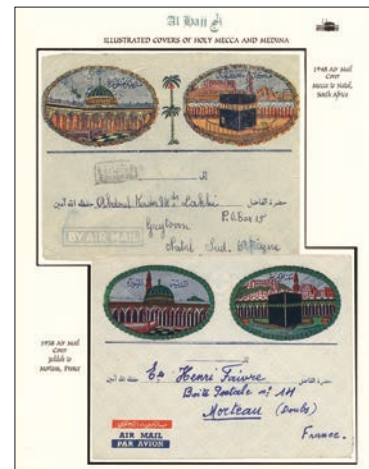 Al Hajj
ILLUSTRATED COVERS OF HOLY MECCA AND MEDINA
1948 Air Mail
Cover
Mecca to Natal,
South Africa
حضرة الفاضل
حفظه الله آمين
P.O. Box 25
Greytown
Natal Sud. Afrique
BY AIR MAIL
1958 Air Mail
Cover
Jeddah to
Morteau, France
حضرة الفاضل
حفظه الله آمين
Henri Faivre
Boite Postale nº 14
Morteau (Doubs)
France.
AIR MAIL
PAR AVION